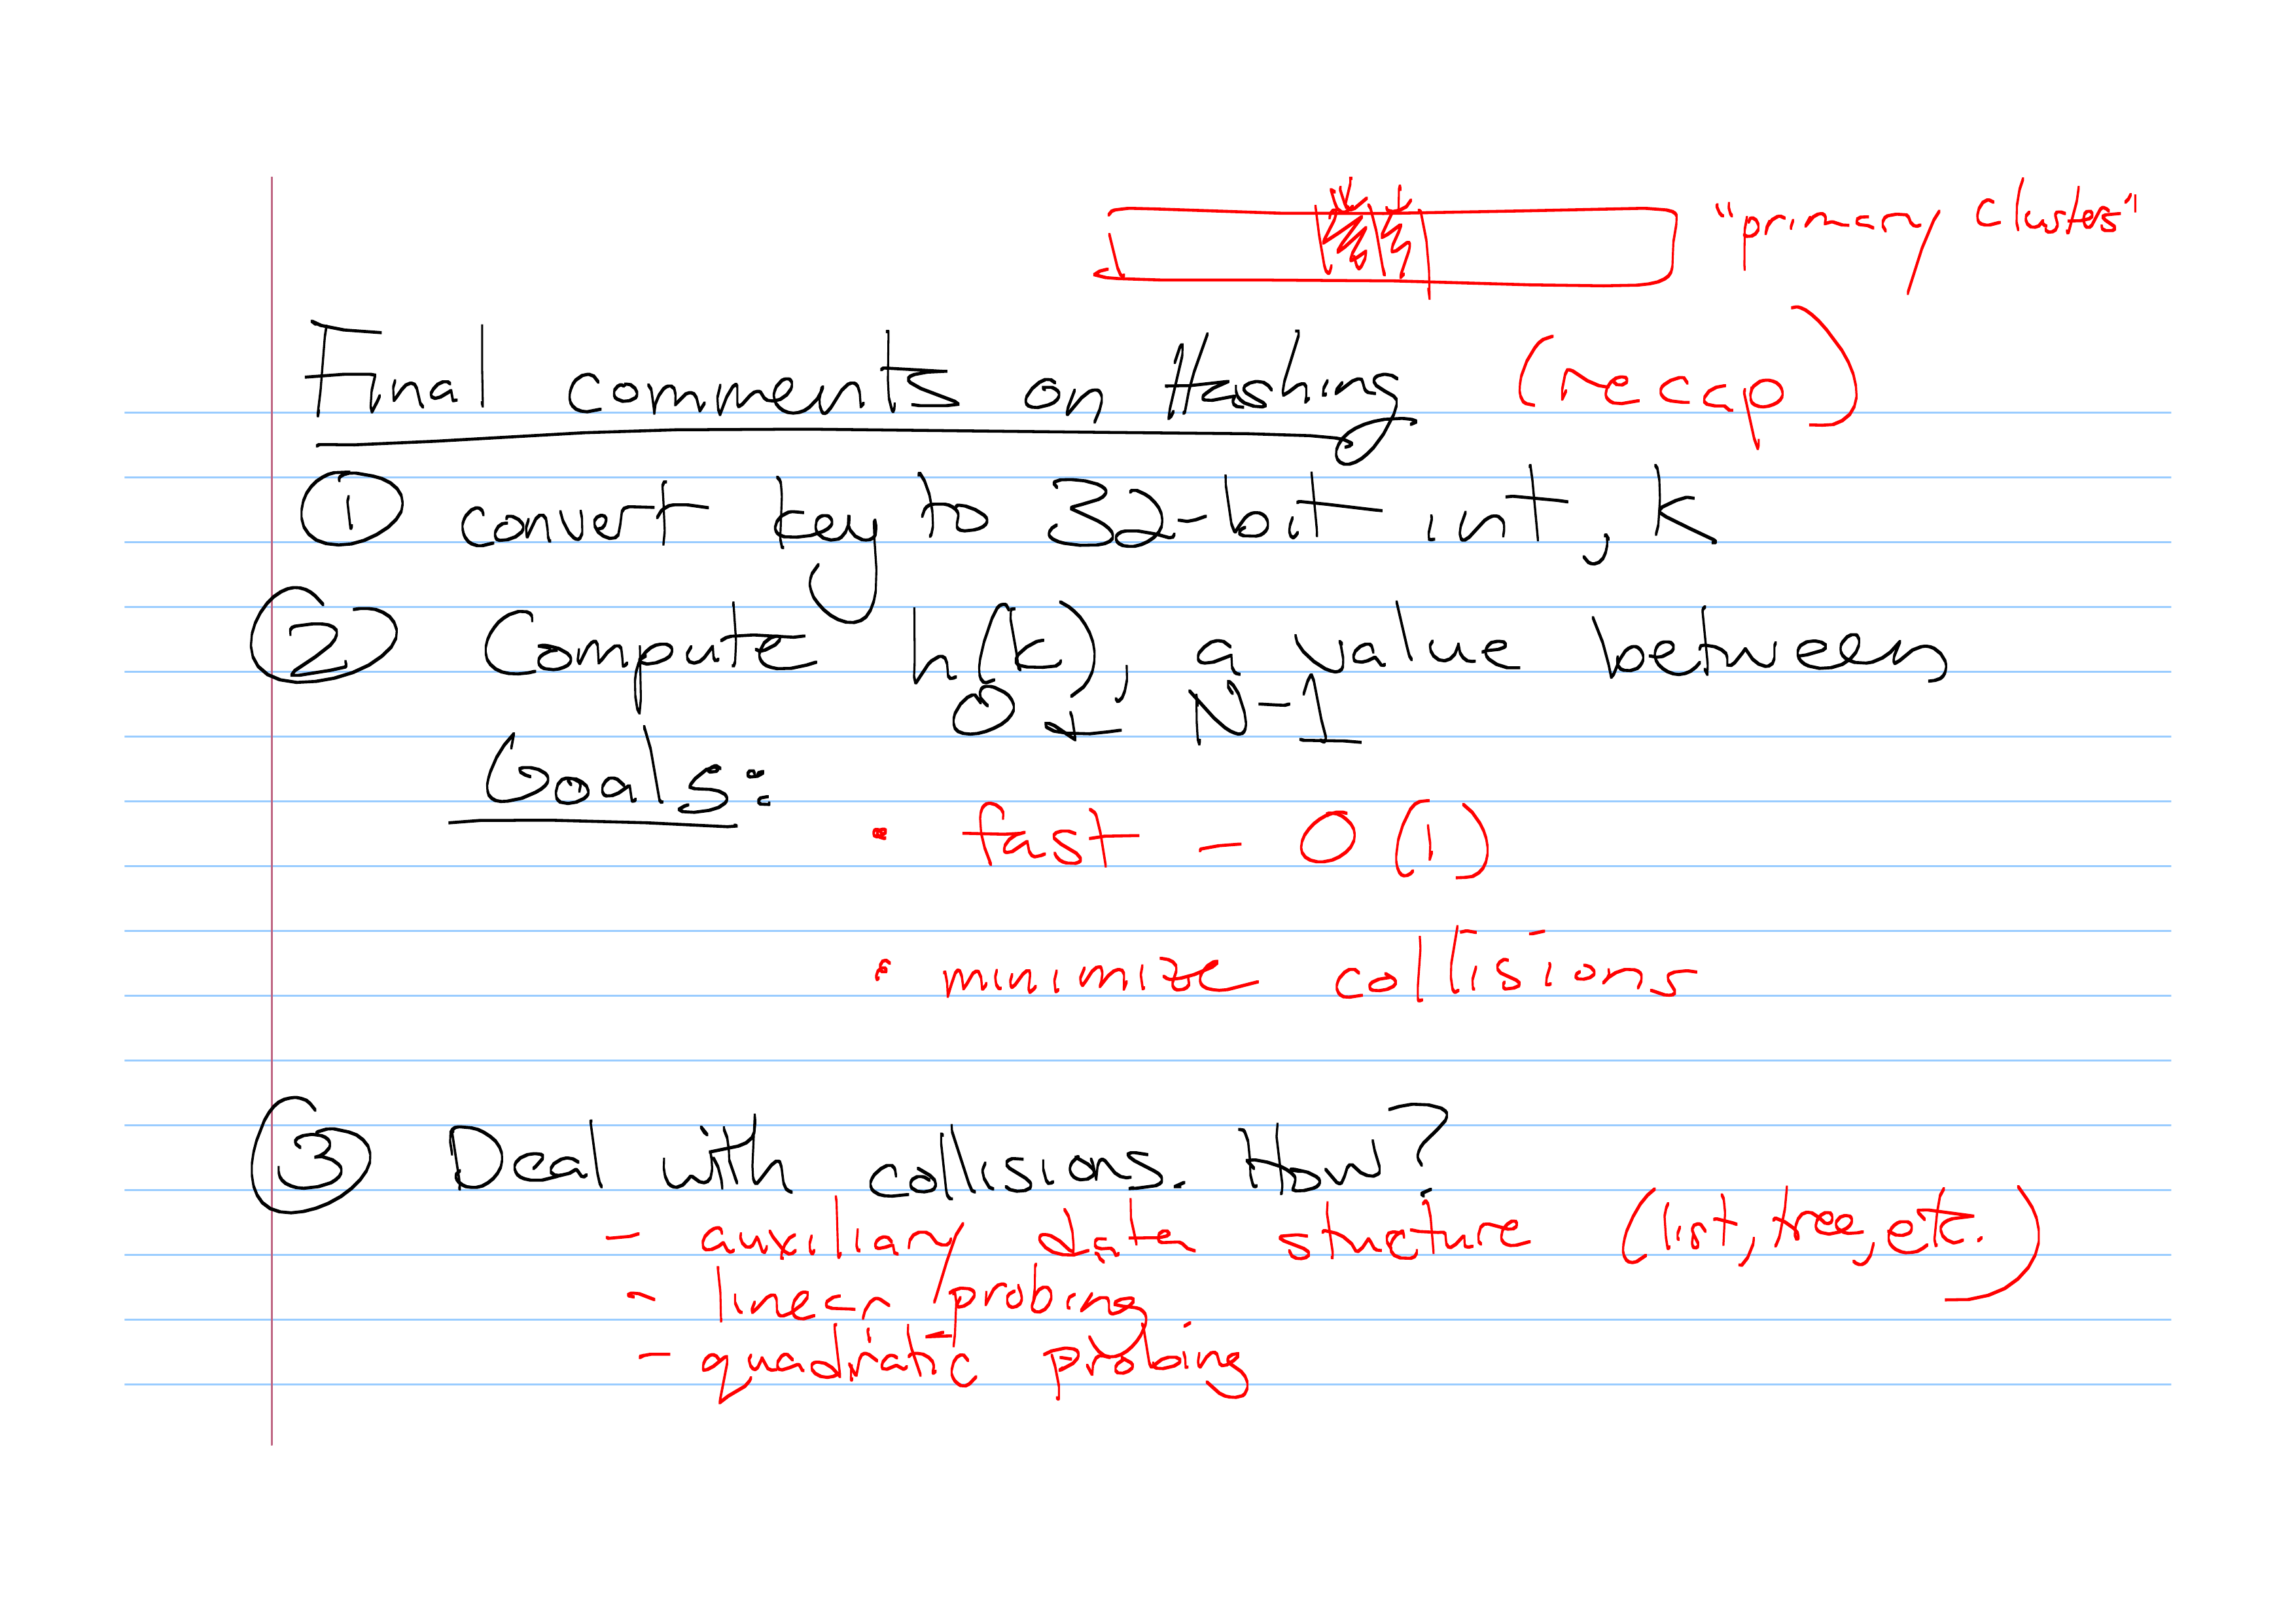 "primary clusters"
Final comments on Hashing (recap)
① convert key to 32-bit int, k
② Compute h(k), a value between
0 + N-1
Goals:
• fast - O(1)
• minimize collisions
③ Deal with collisions. How?
- auxiliary data structure (list, tree, etc.)
- linear probing
- quadratic probing